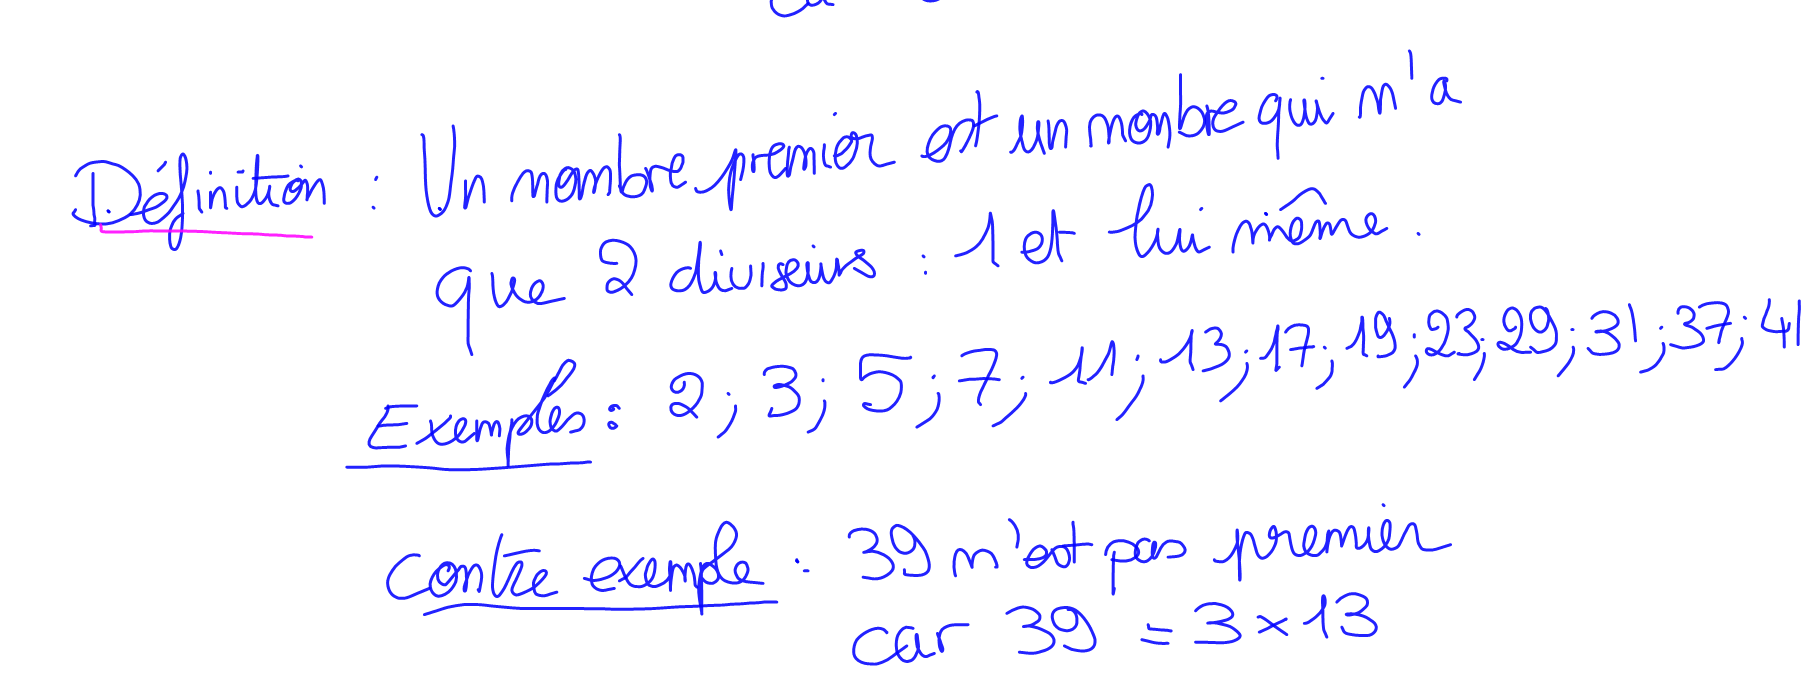 Définition : Un nombre premier est un nombre qui n'a
que 2 diviseurs : 1 et lui même.
Exemples : 2 ; 3 ; 5 ; 7 ; 11 ; 13 ; 17 ; 19 ; 23 ; 29 ; 31 ; 37 ; 41
Contre exemple : 39 n'est pas premier
car 39 = 3 × 13